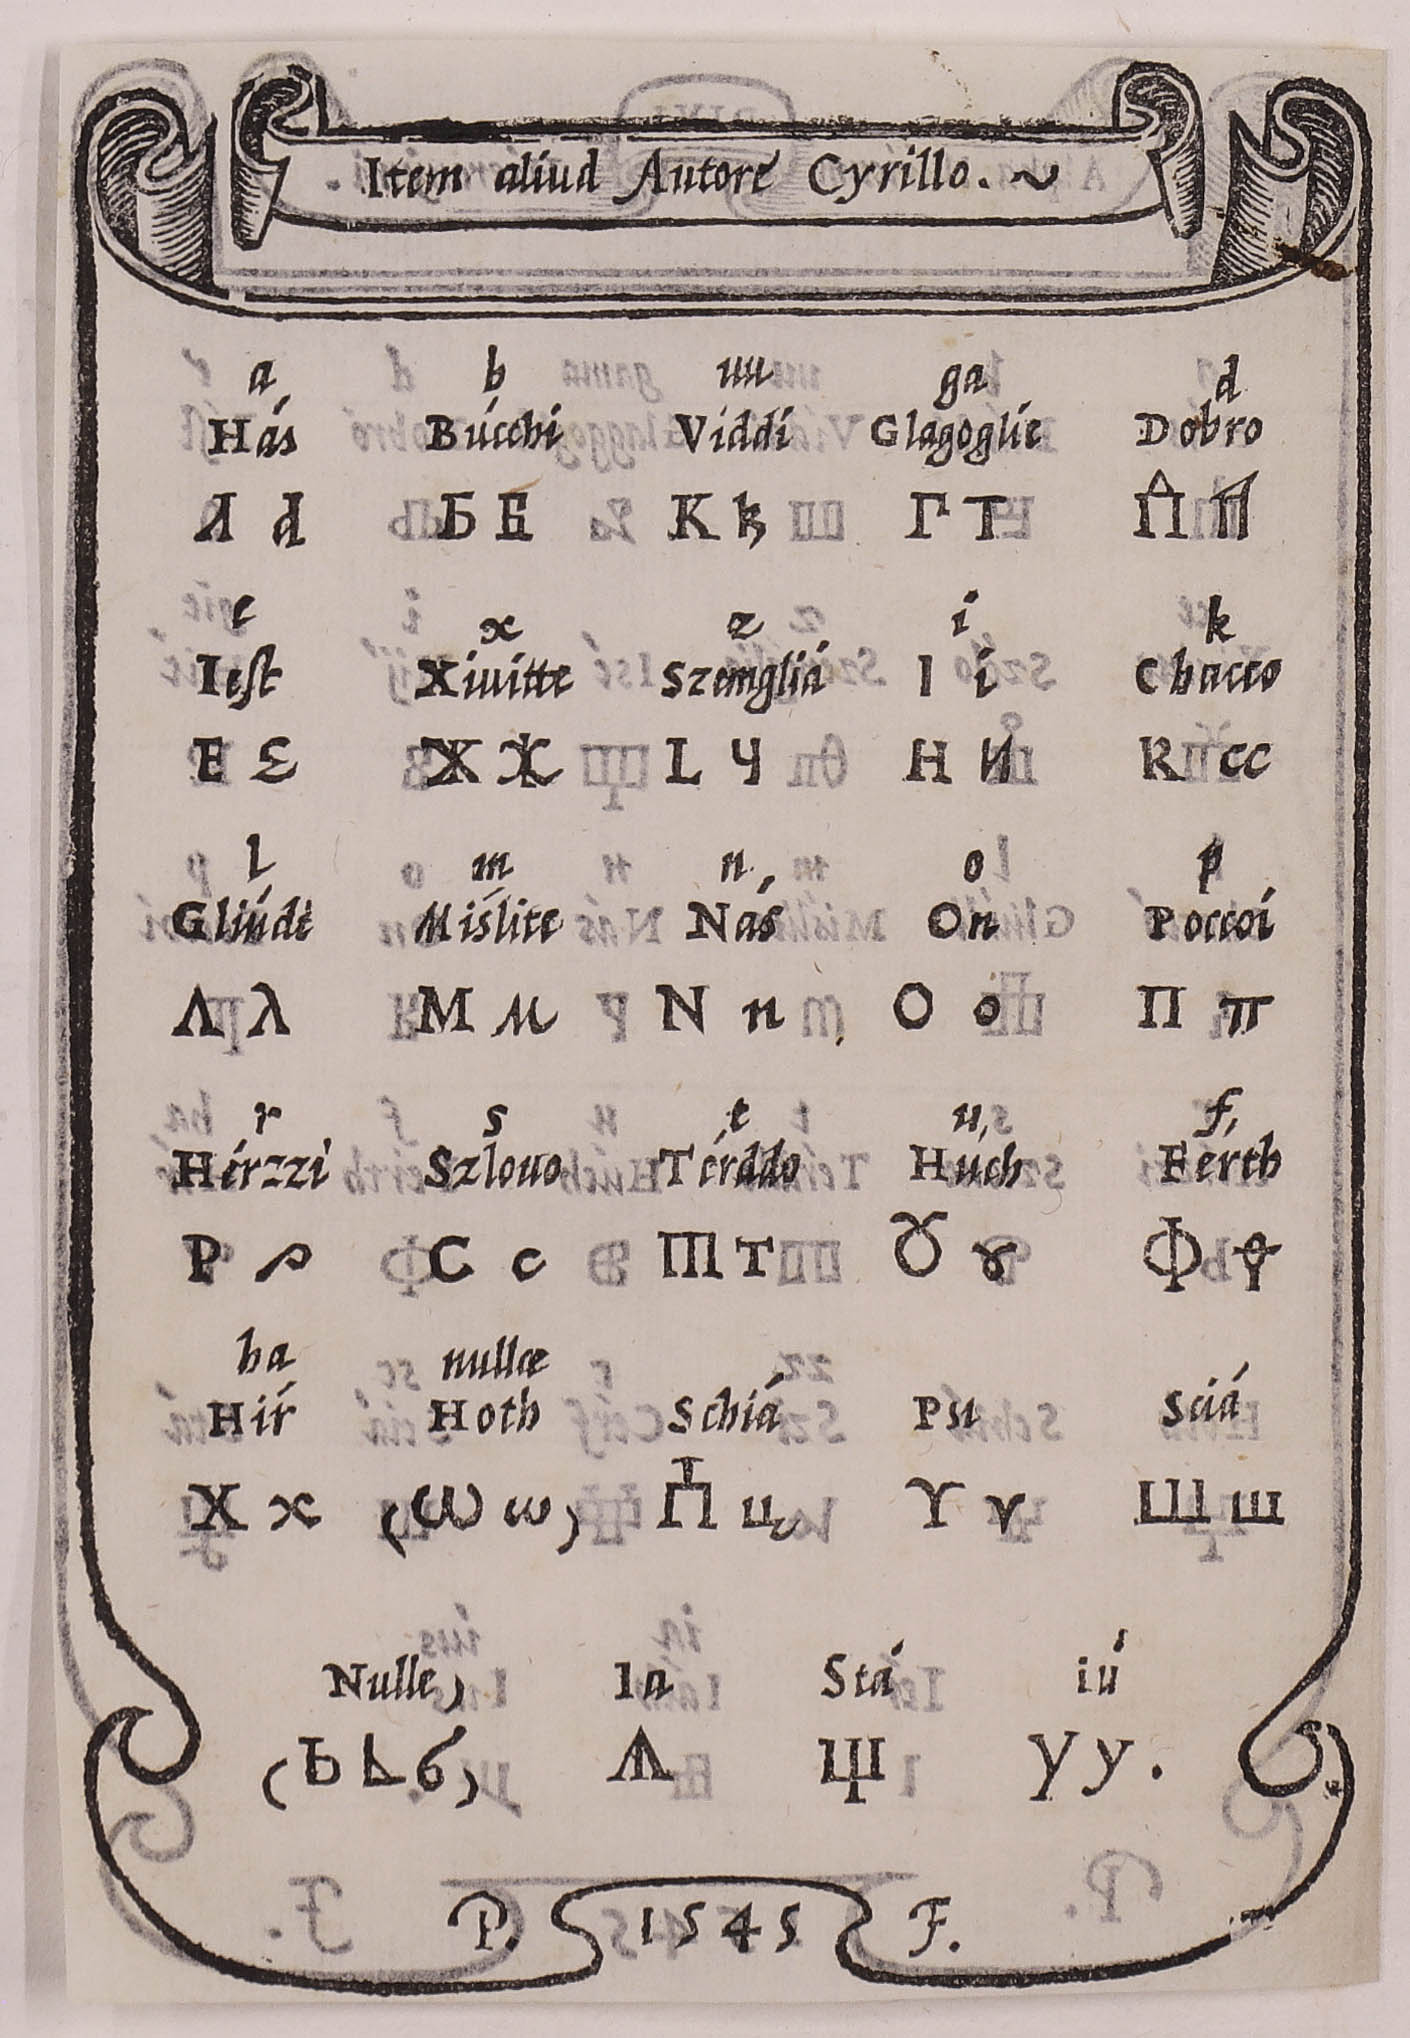 Item aliud Autore Cyrillo.
a b uu ga d
Hás Búcchi Viddí Glagoglíe Dobro
Б Г Т
e x z i k
Iest Xiuítte Szemgliá I í Chacco
Е Ж Ж Ч Н И К
l m n o p
Gliúdi Míslite Nás On Poccoí
Λ λ М м N n О о П п
r s t u f
Hérzzi Szlouo Térddo Húch Ferth
Р С с Т Ȣ ȣ Ф
ha nullæ
Hír Hoth Schiá Psi Sciá
Х х (Ѡ ѡ) ц Ш ш
Nulle Ia Stá iú
Ѧ Щ У у.
P. 1545 F.